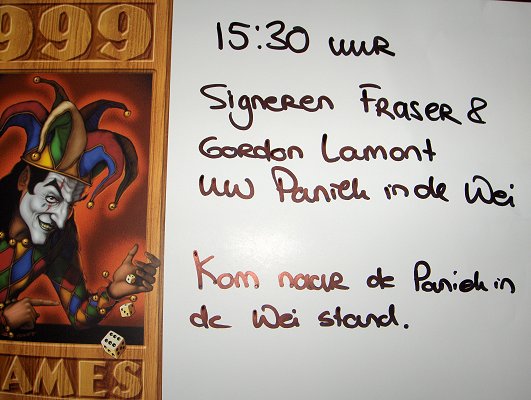 999
AMES
15:30 uur
Signeren Fraser &
Gordon Lamont
uw Paniek in de Wei
Kom naar de Paniek in
de Wei stand.